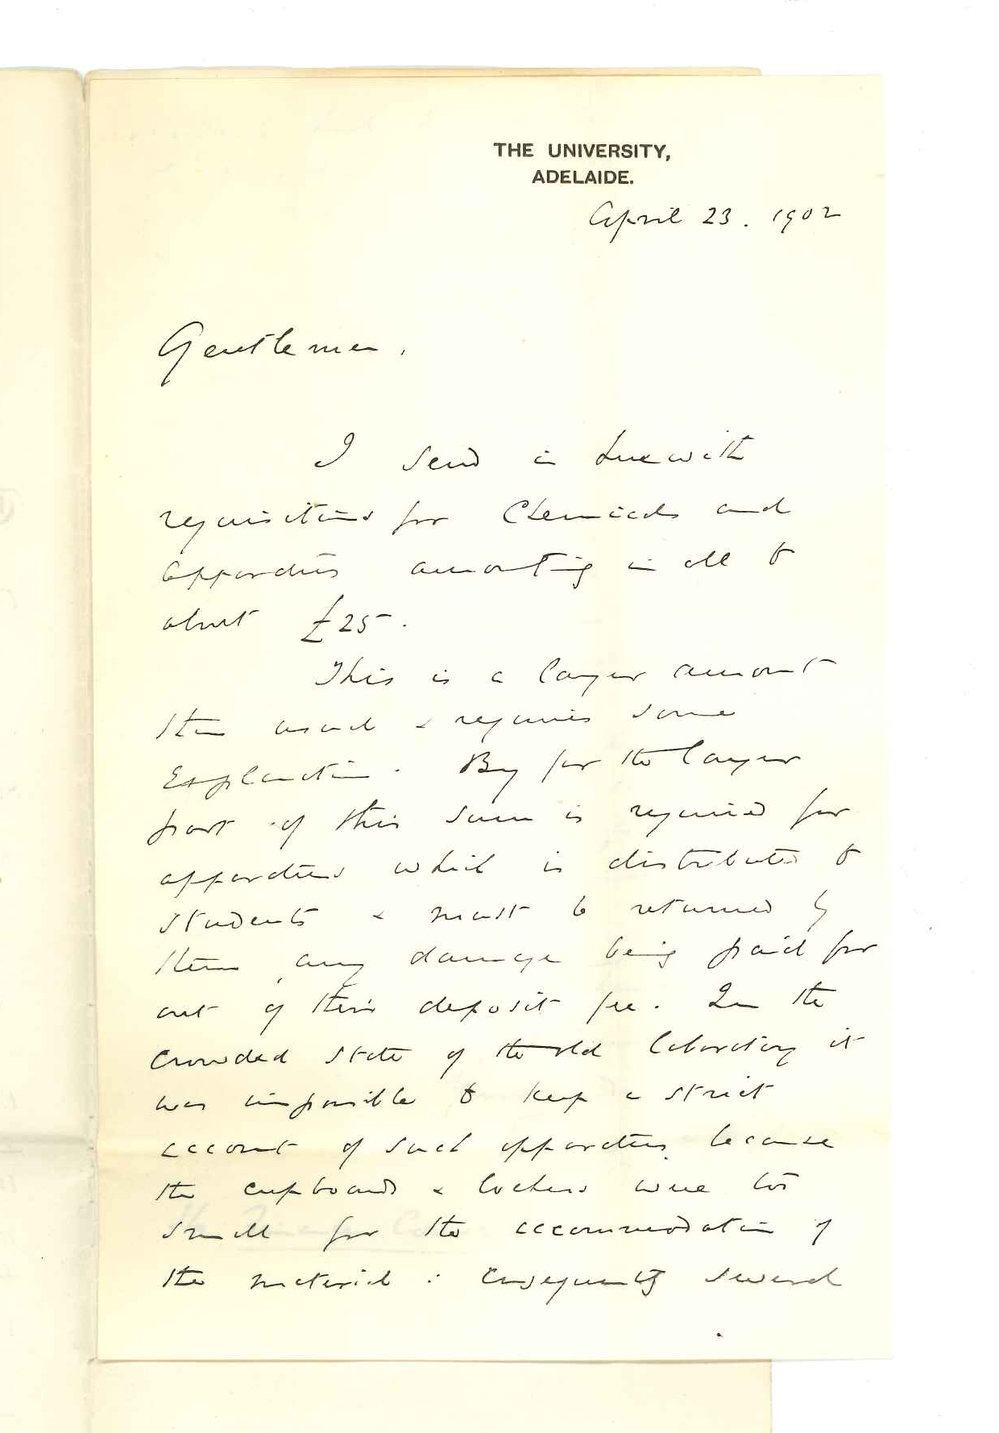 THE UNIVERSITY,
ADELAIDE.
April 23. 1902
Gentlemen,
I send in herewith
requisitions for Chemicals and
apparatus amounting in all to
about £25.
This is a larger amount
than usual & requires some
explanation. By far the larger
part of this sum is required for
apparatus which is distributed to
students & must be returned by
them, any damage being paid for
out of their deposit fee. In the
crowded state of the old laboratory it
was impossible to keep a strict
account of such apparatus, because
the cupboards & lockers were too
small for the accommodation of
the material : consequently several